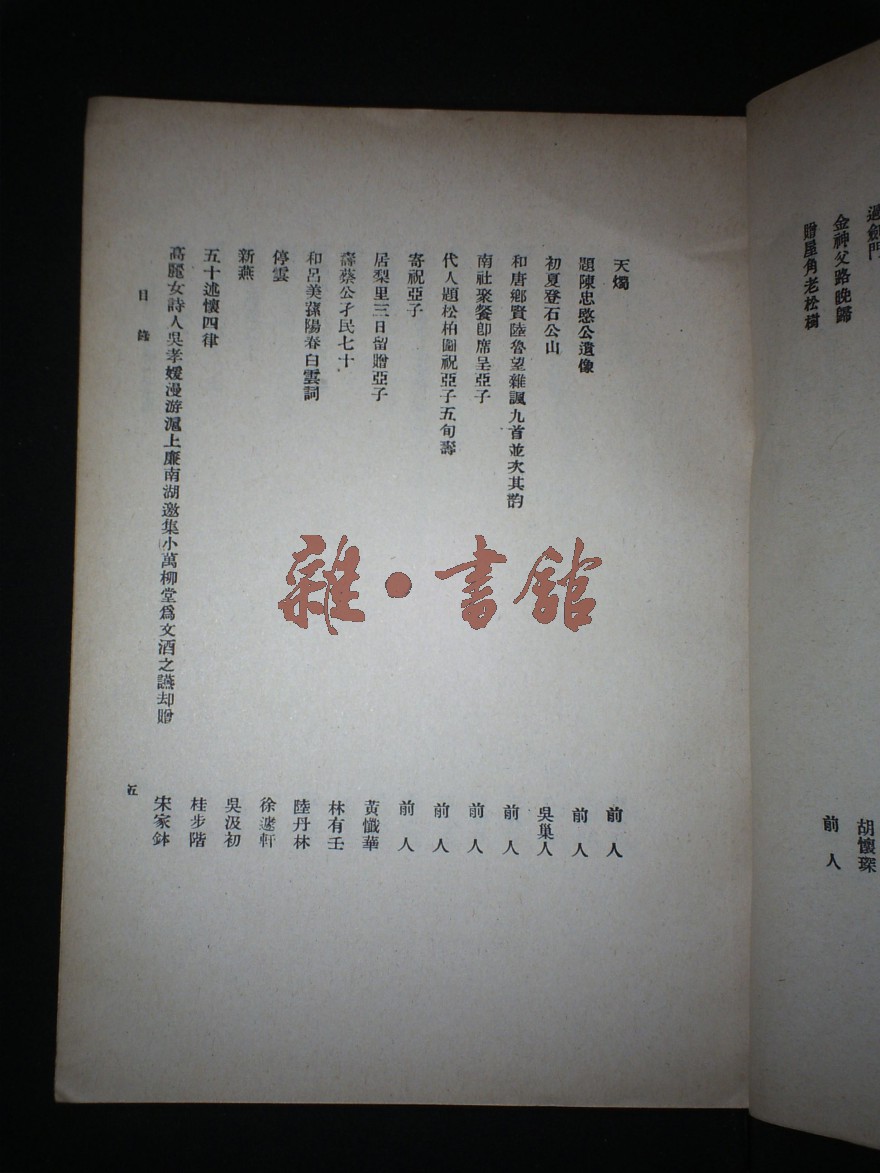 過劍門
胡懷琛
金神父路晚歸
前人
贈屋角老松樹
天燭
前人
題陳忠愍公遺像
前人
初夏登石公山
吳巢人
和唐鄉賢陸魯望雜諷九首並次其韵
前人
南社聚餐卽席呈亞子
前人
代人題松柏圖祝亞子五旬壽
前人
寄祝亞子
前人
居梨里三日留贈亞子
黃懺華
壽蔡公孑民七十
林有壬
和呂美蓀陽春白雲詞
陸丹林
停雲
徐蘧軒
新燕
吳汲初
五十述懷四律
桂步階
高麗女詩人吳孝媛漫游滬上廉南湖邀集小萬柳堂爲文酒之讌却贈
宋家鉢
目錄
五
雜·書館